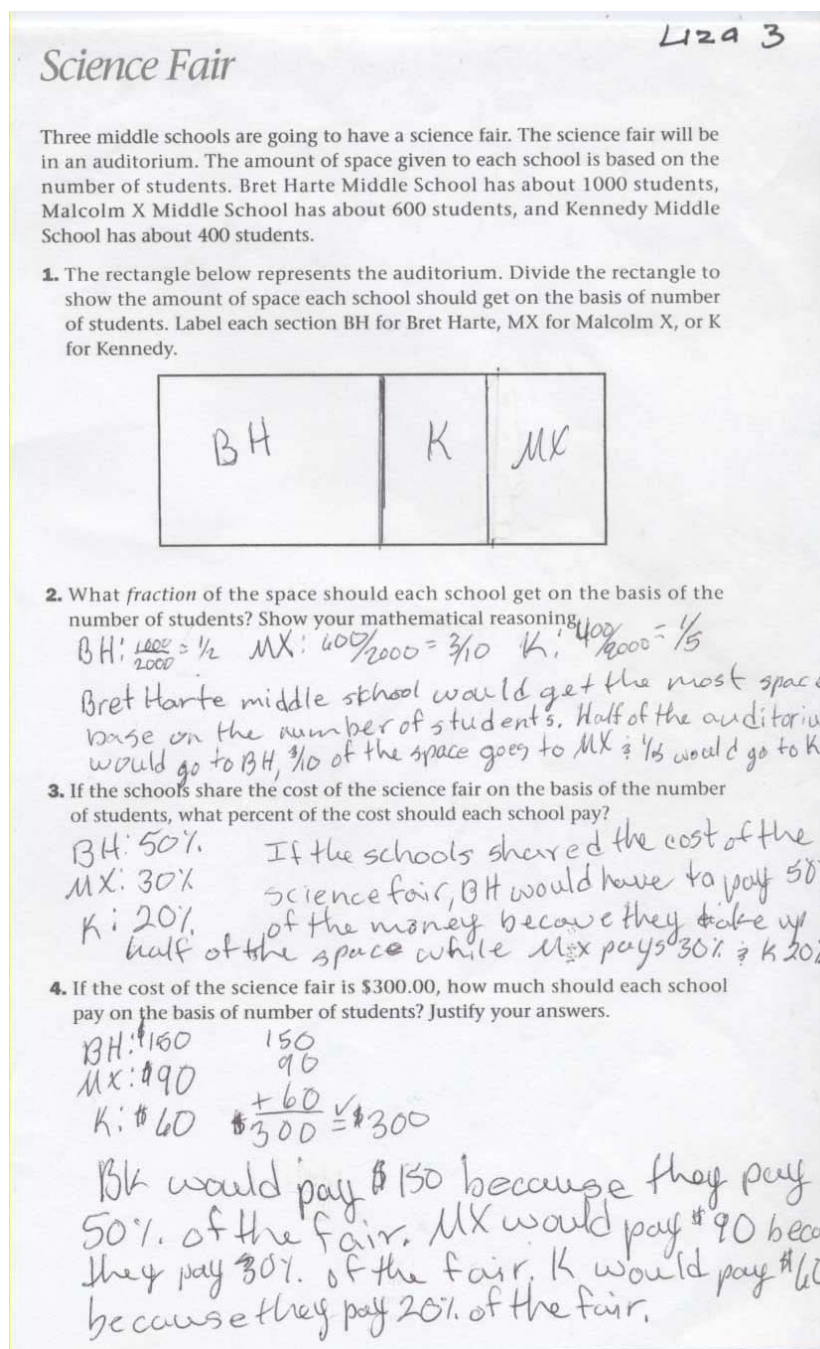 Liza 3
Science Fair
Three middle schools are going to have a science fair. The science fair will be
in an auditorium. The amount of space given to each school is based on the
number of students. Bret Harte Middle School has about 1000 students,
Malcolm X Middle School has about 600 students, and Kennedy Middle
School has about 400 students.
1. The rectangle below represents the auditorium. Divide the rectangle to
show the amount of space each school should get on the basis of number
of students. Label each section BH for Bret Harte, MX for Malcolm X, or K
for Kennedy.
BH K MX
2. What fraction of the space should each school get on the basis of the
number of students? Show your mathematical reasoning.
BH: 1000/2000 = 1/2 MX: 600/2000 = 3/10 K: 400/2000 = 1/5
Bret Harte middle school would get the most spac
base on the number of students. Half of the auditoriu
would go to BH, 3/10 of the space goes to MX & 1/5 would go to K
3. If the schools share the cost of the science fair on the basis of the number
of students, what percent of the cost should each school pay?
BH: 50% If the schools shared the cost of the
MX: 30% science fair, BH would have to pay 50
K: 20% of the money becaue they take up
half of the space while MX pays 30% & K 20%
4. If the cost of the science fair is $300.00, how much should each school
pay on the basis of number of students? Justify your answers.
BH: $150 150
MX: $90 90
K: $60 +60
$300 = $300
BK would pay $150 because they pay
50% of the fair. MX would pay $90 beca
they pay 30% of the fair. K would pay $60
because they pay 20% of the fair.